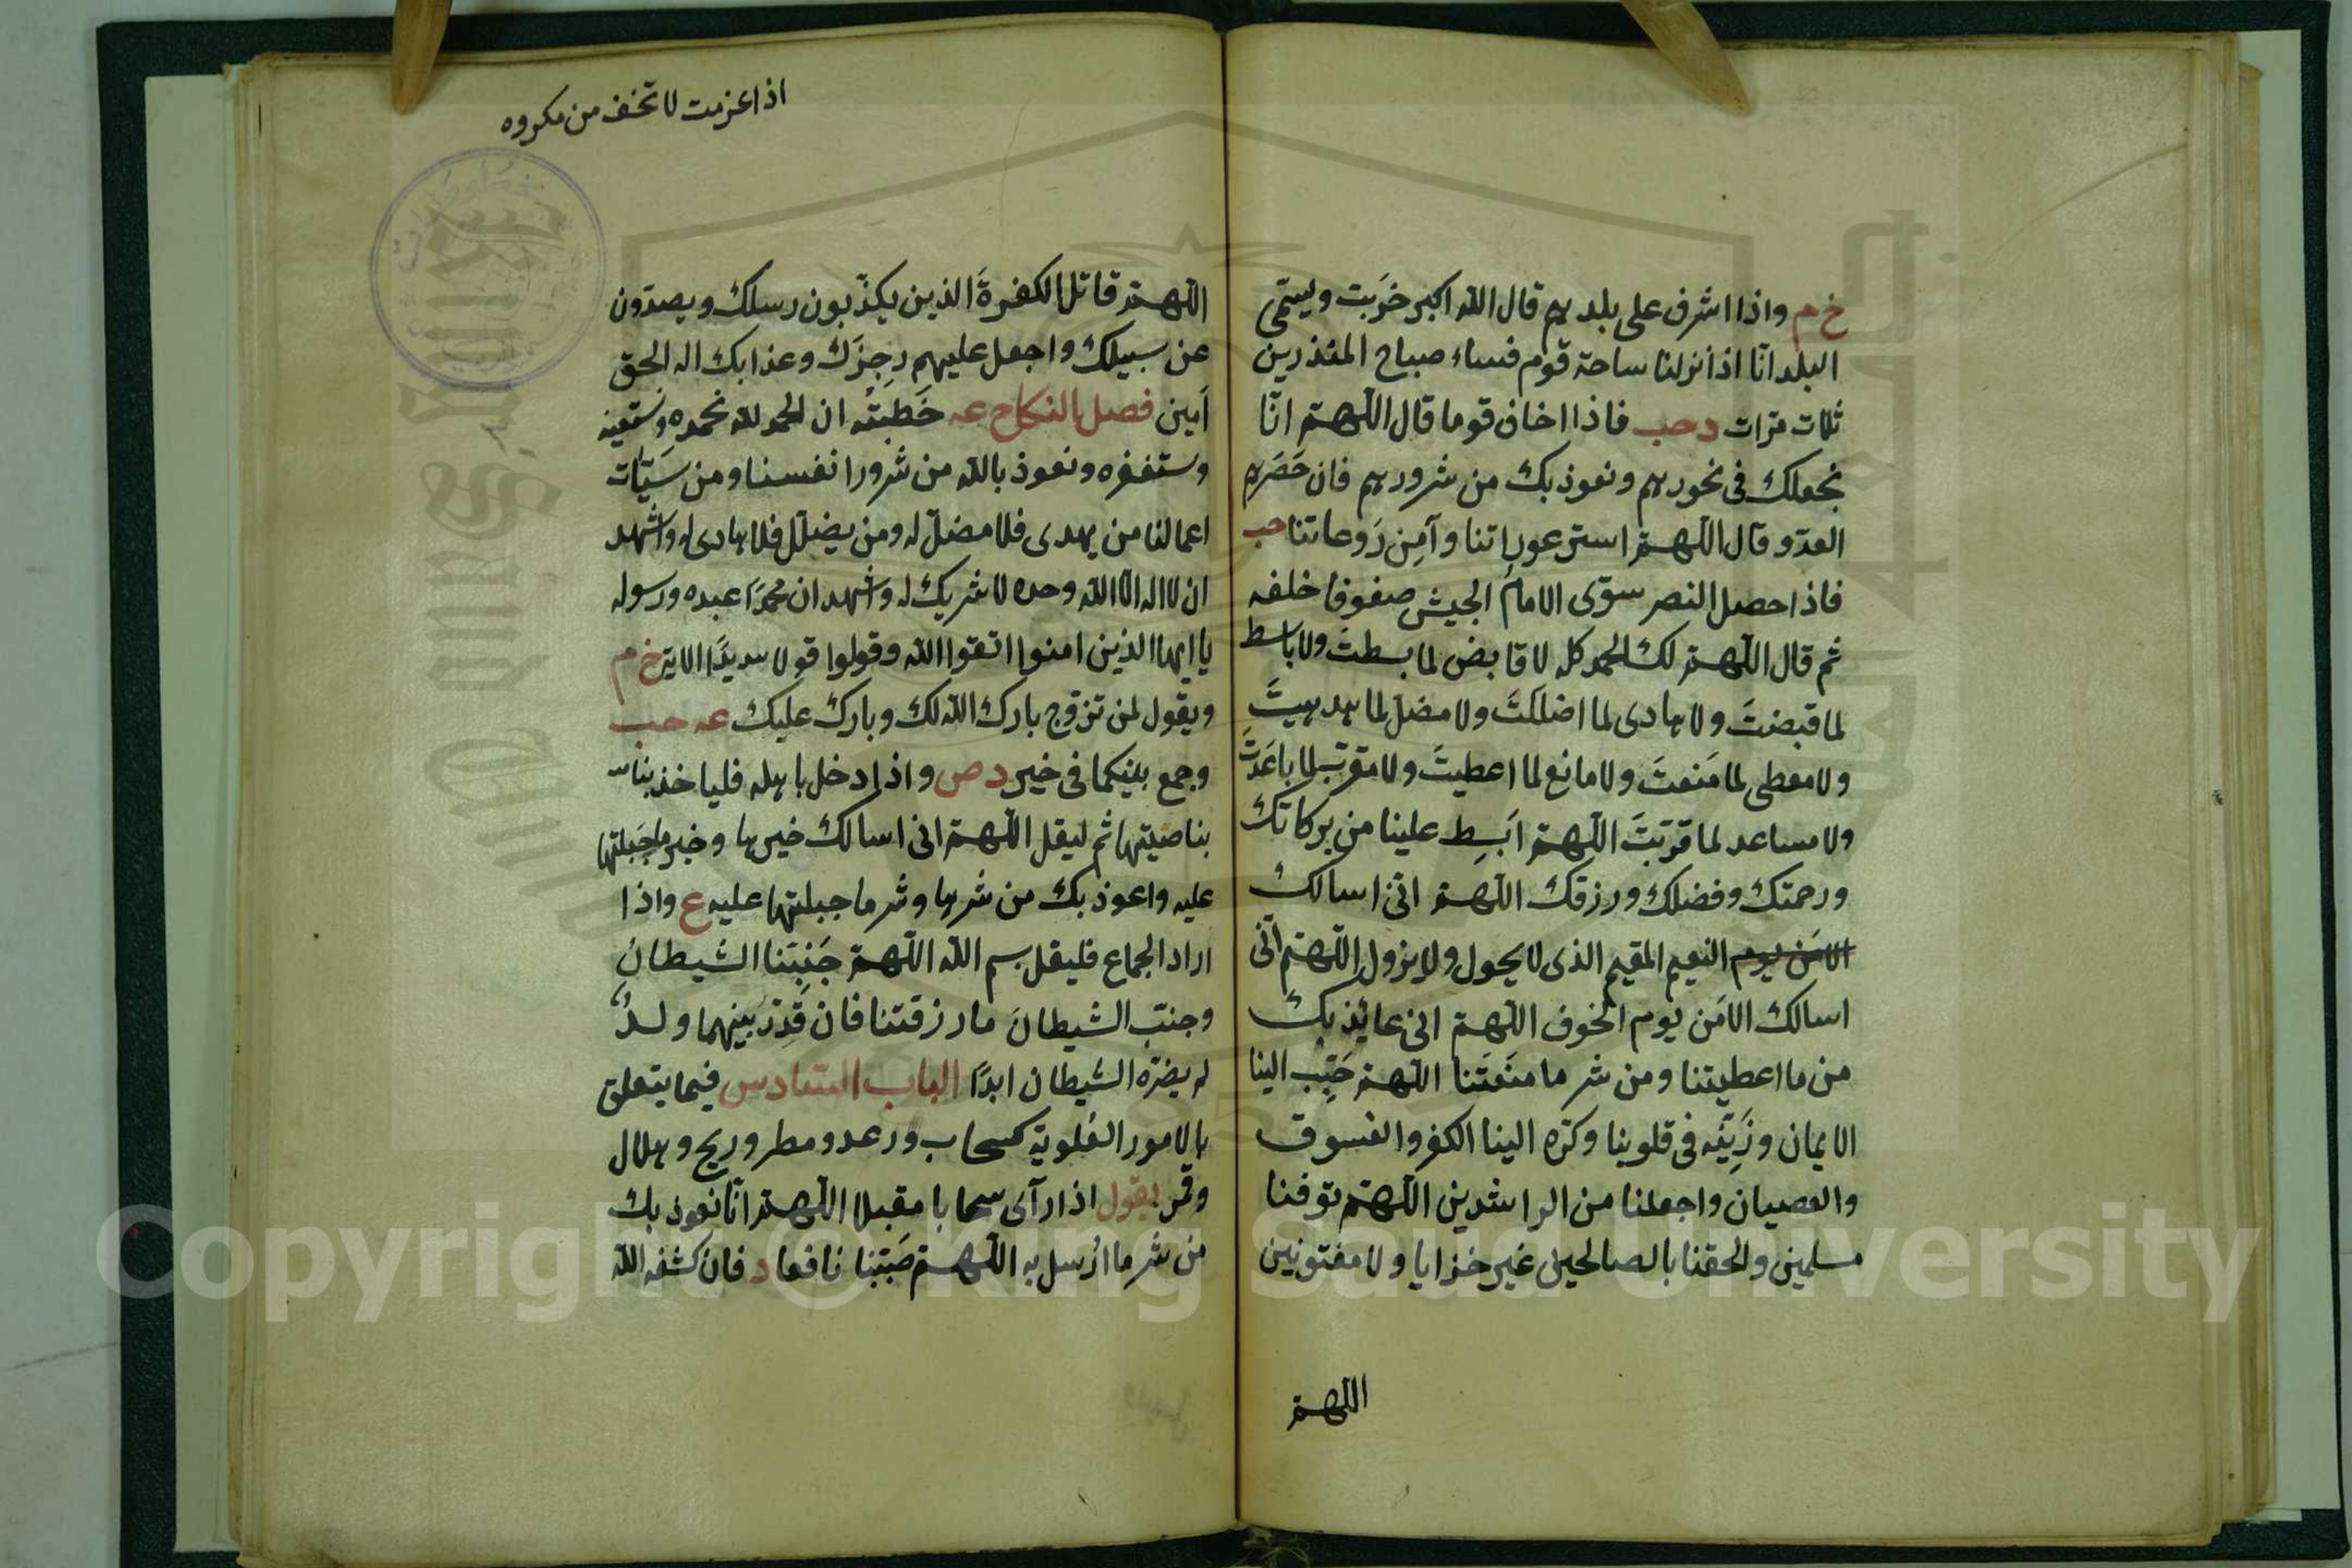 خ م واذا اشرف على بلدهم قال الله اكبر خربت ويسمى
البلد انّا اذا نزلنا ساحة قوم فساء صباح المنذرين
ثلاث مرّات د حب فاذا اخاف قوما قال اللّهمّ انّا
نجعلك فى نحورهم ونعوذ بك من شرورهم فان حَصَرهم
العدّو قال اللّهمّ استر عوراتنا وآمِن رَوعاتنا حب
فاذا حصل النصر سوّى الامام الجيش صفوفا خلفه
ثم قال اللّهمّ لك الحمد كله لا قابض لما بسطتَ ولا باسط
لما قبضتَ ولا هادى لما اضللتَ ولا مضلّ لما هديتَ
ولا معطى لما مَنعتَ ولا مانع لما اعطيتَ ولا مقرّب لما باعَدتَ
ولا مساعد لما قرّبتَ اللّهمّ ابسِط علينا من بركاتك
ورحمتك وفضلك ورزقك اللّهمّ انّى اسالك
الامَن يوم النعيم المقيم الذى لا يحول ولا يزول اللّهمّ انّى
اسالك الامَن يوم الخوف اللّهمّ انى عائذ بك
من ما اعطيتنا ومن شر ما منَعتَنا اللّهمّ حَبِّب الينا
الايمان وزَيِّنه فى قلوبنا وكرّه الينا الكفر والفسوق
والعصيان واجعلنا من الراشدين اللّهمّ توفنا
مسلمين والحقنا بالصالحين غير خزايا ولا مفتونين
اللّهمّ
اذا عزمت لا تخف من مكروه
اللّهمّ قاتل الكفرةَ الذين يكذّبون رسلك ويصدّون
عن سبيلك واجعل عليهم رِجزَك وعذابك اله الحق
آمين فصل النكاح عه خَطبَتُه ان الحمد لله نحمده ونستعينه
وستغفره ونعوذ بالله من شرور انفسنا ومن سَيّئات
اعمالنا من يهدى فلا مضلّ له ومن يضلل فلا هادى له واشهد
ان لا اله الّا الله وحده لا شريك له واشهد ان محمّدًا عبده ورسوله
يا ايها الذين امنوا اتقوا الله وقولوا قولا سديدًا الاية خ م
ويقول لمن تزوّج بارك الله لك وبارك عليك عه حب
وجمع بينكما فى خير د ص واذا دخل باهله فلياخذ
بناصيتها ثم ليقل اللّهمّ انى اسالك خيرها وخير ما جَبلتها
عليه واعوذ بك من شرها وشر ما جبلتها عليه ع واذا
اراد الجماع فليقل بسم الله اللّهمّ جَنِّبنا الشيطان
وجنّب الشيطانَ ما رزقتنا فان قُدِّرَ بينهما ولدٌ
لم يضرّه الشيطان ابدًا الباب السّادس فيما يتعلق
بالامور العُلوية كسحاب ورعد ومطر وريح وهلال
وقمر يقول اذا رآى سحابا مقبلا اللّهمّ انّا نعوذ بك
من شر ما اُرسل به اللّهمّ صَيّبًا نافعا د فان كشفه الله